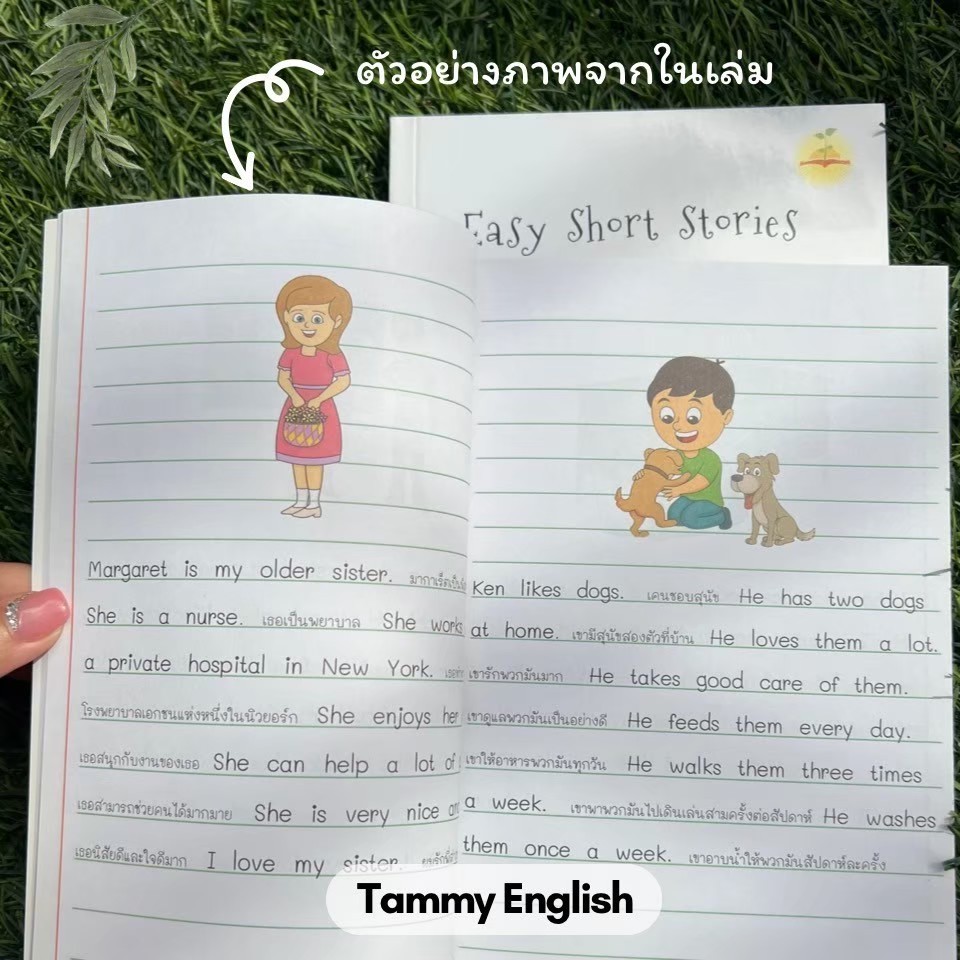 ตัวอย่างภาพจากในเล่ม
Easy Short Stories
Margaret is my older sister.
She is a nurse. เธอเป็นพยาบาล She works
a private hospital in New York.
โรงพยาบาลเอกชนแห่งหนึ่งในนิวยอร์ก She enjoys her
เธอสนุกกับงานของเธอ She can help a lot of
เธอสามารถช่วยคนได้มากมาย She is very nice
เธอนิสัยดีและใจดีมาก I love my sister.
Ken likes dogs. เคนชอบสุนัข He has two dogs
at home. เขามีสุนัขสองตัวที่บ้าน He loves them a lot.
เขารักพวกมันมาก He takes good care of them.
เขาดูแลพวกมันเป็นอย่างดี He feeds them every day.
เขาให้อาหารพวกมันทุกวัน He walks them three times
a week. เขาพาพวกมันไปเดินเล่นสามครั้งต่อสัปดาห์ He washes
them once a week. เขาอาบน้ำให้พวกมันสัปดาห์ละครั้ง
Tammy English